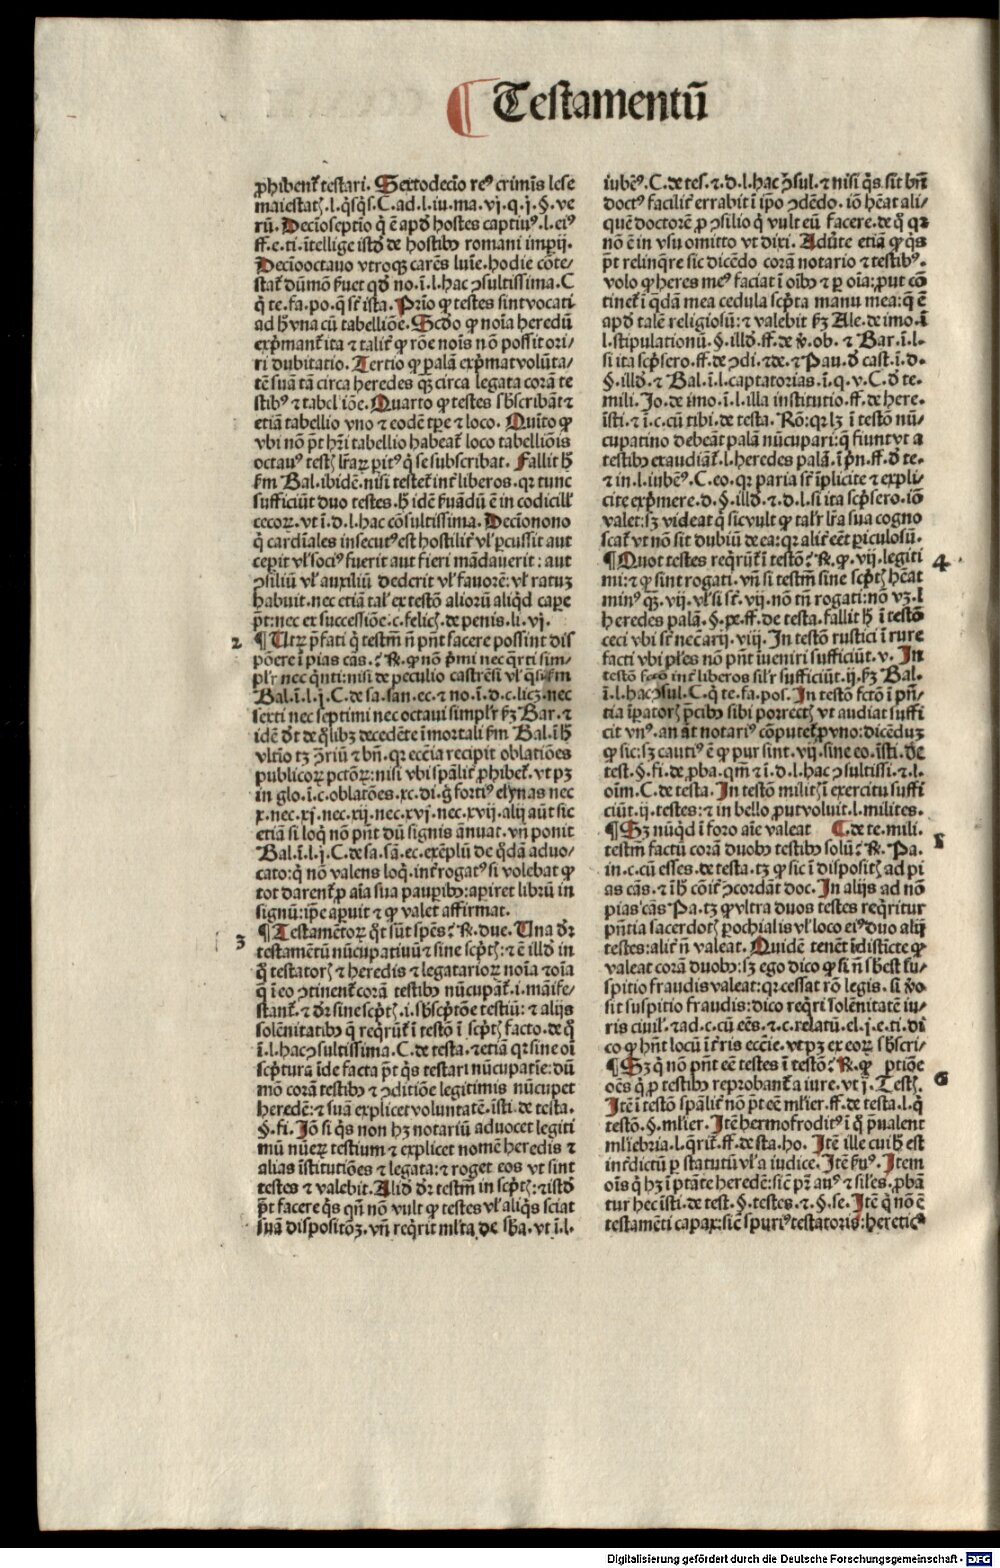 Testamentū
ꝓhibent᷑ testari. Sextodecio re⁹ crimīs lese
maiestatꝭ.l.q̇sq̇s.C.ad.l.iu.ma.vj.q.j.§.ve
rū. Decioseptio q̇ ē apḋ hostes captiu⁹.l.ei⁹
ff.e.ti.ītellige istḋ de hostibꝰ romani imꝑij.
Deciooctauo vtroqꝫ carēs luīe.hodie cōte/
stat᷑ dūmō ẜuet qḋ no.ī.l.hac ↄsultissima.C
q̇ te.fa.po.q̇ sr̄ ista. Prīo ꝙ testes sint vocati
ad h̄ vna cū tabelliōe. Scḋo ꝙ noīa heredū
exṗmant᷑ ita ⁊ talit᷑ ꝙ rōe noīs nō possit ori/
ri dubitatio. Tertio ꝙ palā exṗmat volūta/
tē suā tā circa heredes qꝫ circa legata corā te
stib⁹ ⁊ tabelliōe. Quarto ꝙ testes sb̄scribāt ⁊
etiā tabellio vno ⁊ eodē tꝑe ⁊ loco. Quīto ꝙ
vbi nō pt̄ hr̄i tabellio habeat᷑ loco tabelliōis
octau⁹ testꝭ lr̄aꝝ ꝑit⁹ q̇ se subscribat. Fallit h̄
ẜm Bal.ibidē.nisi testet᷑ int᷑ liberos.qꝛ tunc
sufficiūt duo testes.h̄ idē ẜuādū ē in codicill̕
cecoꝝ.vt ī.d.l.hac cōsultissima. Decionono
q̇ cardīales insecut⁹ est hostilit᷑ vl̕ ꝑcussit aut
cepit vl̕ soci⁹ fuerit aut fieri mādauerit: aut
ↄsiliū vl̕ auxiliū dederit vl̕ fauorē: vl̕ ratuꝫ
habuit.nec etiā tal̕ ex testō aliorū aliqḋ caꝑe
pt̄:nec ex successiōe.c.felicꝭ.de penis.li.vj.
2 ¶ Utꝝ ꝑfati q̇ testm̄ n̄ pn̄t facere possint dis
pōere ī pias cās.℟. ꝙ nō ṗmi nec q̇rti sim/
pl̕r nec q̇nti:nisi de peculio castrēsi vl̕ q̇si ẜm
Bal.ī.l.j.C.de sa.san.ec.⁊ no.ī.d.c.licꝫ.nec
sexti nec septimi nec octaui simpl̕r ẜꝫ Bar.⁊
idē ḋt de q̇libꝫ decedēte ī mortali ẜm Bal.ī h̄
vltīo tꝫ ↄ̄riū ⁊ bn̄.qꝛ eccīa recipit oblatiōes
publicoꝝ pctōꝝ:nisi vbi spālit᷑ ꝓhibet᷑.vt pꝫ
in glo.ī.c.oblatōes.xc.di.ḡ forti⁹ elynas nec
x.nec.xj.nec.xij.nec.xvj.nec.xvij.alij aūt sic
etiā si loq̇ nō pn̄t dū signis ānuat.vn̄ ponit
Bal.ī.l.j.C.de sa.sā.ec.exēplū de q̇dā aduo/
cato:q̇ nō valens loq̇.int᷑rogat⁹ si volebat ꝙ
tot darent᷑ ꝓ aīa sua pauꝑibꝰ:aꝑiret librū in
signū:ip̄e aꝑuit ⁊ ꝙ valet affirmat.
3 ¶ Testamētoꝝ q̇t sūt spēs?℟.due. Una dr̄
testamētū nūcupatiuū ⁊ sine scptꝭ:⁊ ē illḋ in
q̇ testatorꝭ ⁊ heredis ⁊ legatarioꝝ noīa ⁊ oīa
q̇ ī eo ↄtinent᷑ corā testibꝰ nūcupāt᷑.i.manife/
stant᷑.⁊ dr̄ sine scptꝭ.i.sb̄scptōe testiū:⁊ alijs
solēnitatibꝰ q̇ req̇rūt᷑ ī testō ī scptꝭ facto.de q̇
ī.l.hac ↄsultissima.C.de testa.⁊ etiā qꝛ sine oī
scptura īde facta pt̄ q̇s testari nūcupatīe:dū
mō corā testibꝰ ⁊ ↄditiōe legitimis nūcupet
heredē:⁊ suā explicet voluntatē.īsti.de testa.
§.fi. Jō si q̇s non hꝫ notariū aduocet legiti
mū nūeꝝ testium ⁊ explicet nomē heredis ⁊
alias īstitutiōes ⁊ legata:⁊ roget eos vt sint
testes ⁊ valebit. Aliḋ dr̄ testm̄ in scptꝭ:⁊ istḋ
pt̄ facere q̇s qn̄ nō vult ꝙ testes vl̕ aliq̇s sciat
suā dispositōꝫ.vn̄ req̇rit ml̕ta de sb̄a.vt ī.l.
iubem⁹.C.de tes.⁊.d.l.hac ↄ̄sul.⁊ nisi q̇s sit bn̄
doct⁹ facilit᷑ errabit ī ip̄o ↄdēdo.iō hēat ali/
quē doctorē ꝓ ↄsilio q̇ vult eū facere.de q̇ qꝛ
nō ē in vsu omitto vt dixi. Adūte etiā ꝙ q̇s
pt̄ relinq̇re sic dicēdo corā notario ⁊ testib⁹.
volo ꝙ heres me⁹ faciat ī oībꝰ ⁊ ꝑ oīa:ꝓut cō
tinet᷑ ī q̇dā mea cedula scpta manu mea:q̇ ē
apḋ talē religiosū:⁊ valebit ẜꝫ Ale.de imo.ī
l.stipulationū.§.illḋ.ff.de v̇.ob.⁊ Bar.ī.l.
si ita scpsero.ff.de ↄdi.⁊de.⁊ Pau.ḋ cast.ī.d.
§.illḋ.⁊ Bal.ī.l.captatorias.ī.q.v.C.ḋ te.
mili. Jo.de imo.ī.l.illa institutio.ff.de here.
īsti.⁊ ī.c.cū tibi.de testa. Rō:qꝛ lꝫ ī testō nū/
cupatino debeāt palā nūcupari:q̇ fiunt vt a
testibꝰ exaudiāt᷑.l.heredes palā.ī pn̄.ff.ḋ te.
⁊ in.l.iubem⁹.C.eo.qꝛ paria sr̄ īplicite ⁊ expli/
cite exṗmere.d.§.illḋ.⁊.d.l.si ita scpsero.iō
valet:sꝫ videat q̇ sic vult ꝙ tal̕r lr̄a sua cogno
scat᷑ vt nō sit dubiū de ea:qꝛ alit᷑ eēt ꝑiculosū.
¶ Quot testes req̇rūt᷑ ī testō?℟.ꝙ.vij.legiti 4
mi:⁊ ꝙ sint rogati.vn̄ si testm̄ sine scptꝭ hēat
min⁹ qꝫ.vij.vl̕ si sr̄.vij.nō tn̄ rogati:nō vꝫ.l
heredes palā.§.pe.ff.de testa.fallit h̄ ī testō
ceci vbi sr̄ necārij.viij. In testō rustici ī rure
facti vbi pl̕es nō pn̄t iueniri sufficiūt.v. In
testō int᷑ liberos sil̕r sufficiūt.ij.ẜꝫ Bal.
ī.l.hac ↄsul.C.q̇ te.fa.pos. In testō fctō ī pn̄/
tia īꝑatorꝭ ꝑcibꝰ sibi porrectꝭ vt audiat suffi
cit vn⁹.an āt notari⁹ cōputet᷑ ꝓ vno:dicēduꝫ
ꝙ sic:sꝫ cauti⁹ ē ꝙ pur sint.vij.sine eo.īsti.de
test.§.fi.de ꝓba.qm̄ ⁊ ī.d.l.hac ↄsultissi.⁊.l.
oīm.C.de testa. In testō militꝭ ī exercitu suffi
ciūt.ij.testes:⁊ in bello ꝓut voluit.l.milites.
¶ Sꝫ nūq̇d ī foro aīe valeat C.de te.mili. 5
testm̄ factū corā duobꝰ testibꝰ solū?℟. Pa.
in.c.cū esses.de testa.tꝫ ꝙ sic ī dispositꝭ ad pi
as cās.⁊ ī h̄ cōit᷑ ↄcordāt doc. In alijs ad nō
pias cās Pa.tꝫ ꝙ vltra duos testes req̇ritur
pn̄tia sacerdotꝭ ꝑochialis vl̕ loco ei⁹ duo alij
testes:alit᷑ n̄ valeat. Quidē tenēt īdistīcte ꝙ
valeat corā duobꝰ:sꝫ ego dico ꝙ si n̄ sb̄est su/
spitio fraudis valeat:qꝛ cessat rō legis.si v̇o
sit suspitio fraudis:dico req̇ri solēnitatē iu/
ris ciuil̕.⁊ ad.c.cū eēs.⁊.c.relatū.el.j.e.ti.di
co ꝙ hn̄t locū ī t᷑ris eccīe.vt pꝫ ex eoꝝ sb̄scri/
¶ Sꝫ q̇ nō pn̄t eē testes ī testō?℟.ꝙ ptiōe 6
oēs q̇ ꝓ testibꝰ reprobant᷑ a iure.vt ī. Testꝭ.
Itē ī testō spālit᷑ nō pt̄ eē ml̕ier.ff.de testa.l.q̇
testō.§.ml̕ier. Itē hermofrodit⁹ ī q̇ p̄ualent
ml̕iebria.l.q̇rit᷑.ff.de sta.ho. Itē ille cui h̄ est
int᷑dictū ꝑ statutū vl̕ a iudice. Itē ẜu⁹. Item
oīs q̇ hꝫ ī ptāte heredē:sic̄ pr̄ au⁹ ⁊ sil̕es.ꝓbā
tur hec īsti.de test.§.testes.⁊.§.se. Itē q̇ nō ē
testamēti capax:sic̄ spuri⁹ testatoris:heretic⁹
Digitalisierung gefördert durch die Deutsche Forschungsgemeinschaft - DFG